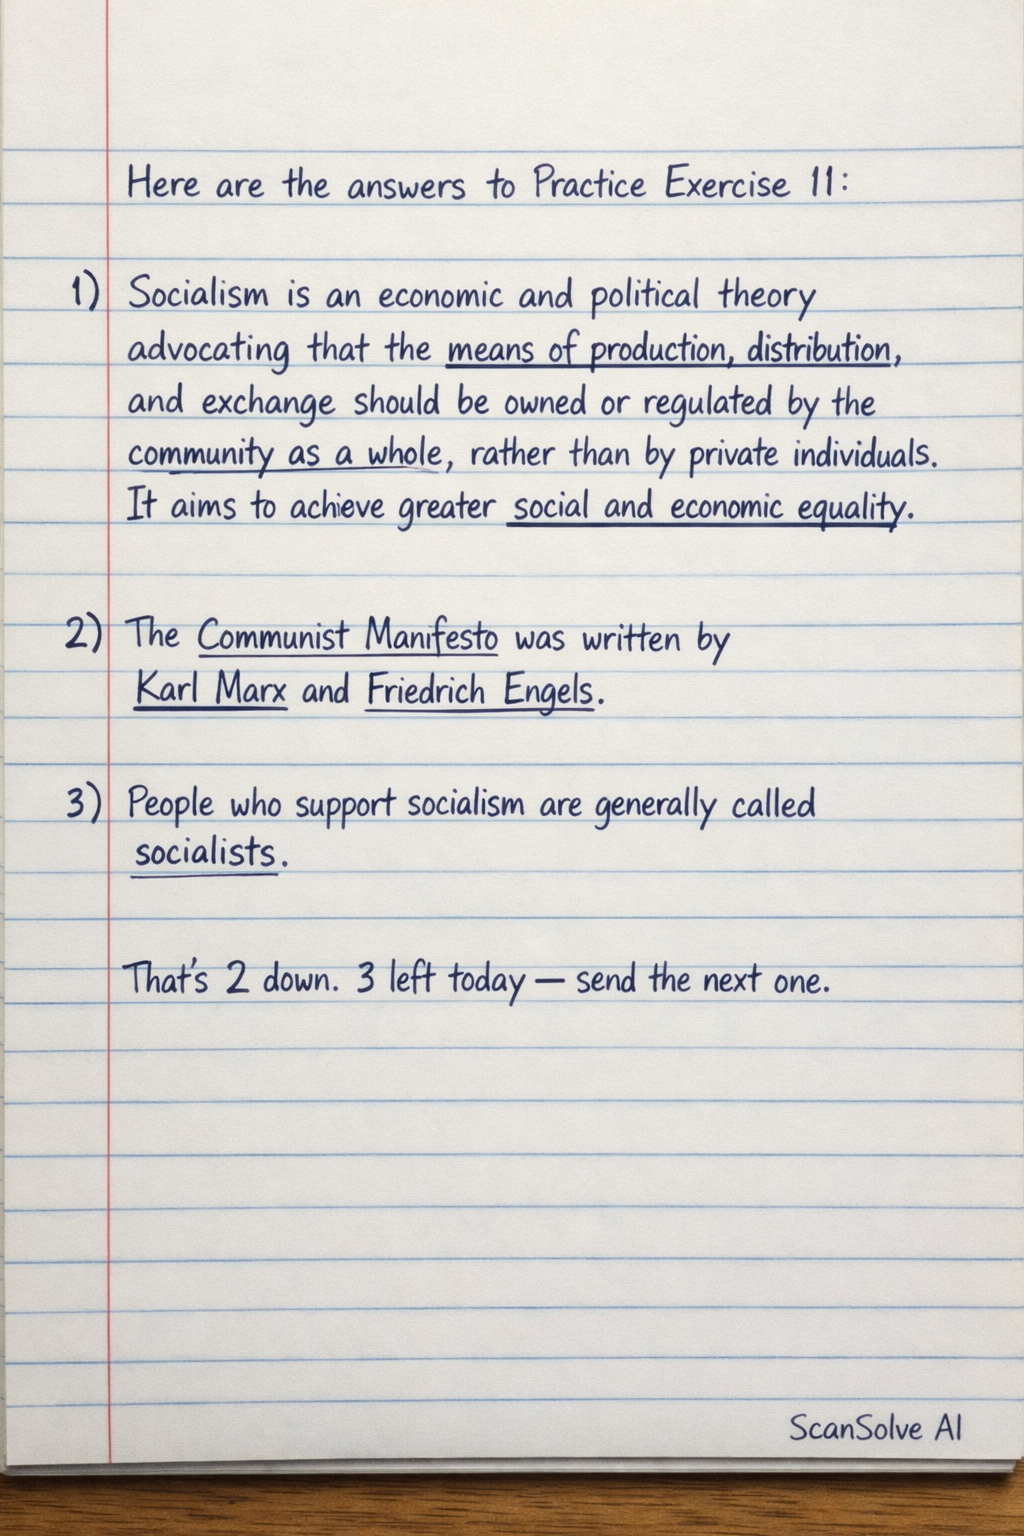 Here are the answers to Practice Exercise 11:
1) Socialism is an economic and political theory
advocating that the means of production, distribution,
and exchange should be owned or regulated by the
community as a whole, rather than by private individuals.
It aims to achieve greater social and economic equality.
2) The Communist Manifesto was written by
Karl Marx and Friedrich Engels.
3) People who support socialism are generally called
socialists.
That's 2 down. 3 left today — send the next one.
ScanSolve AI